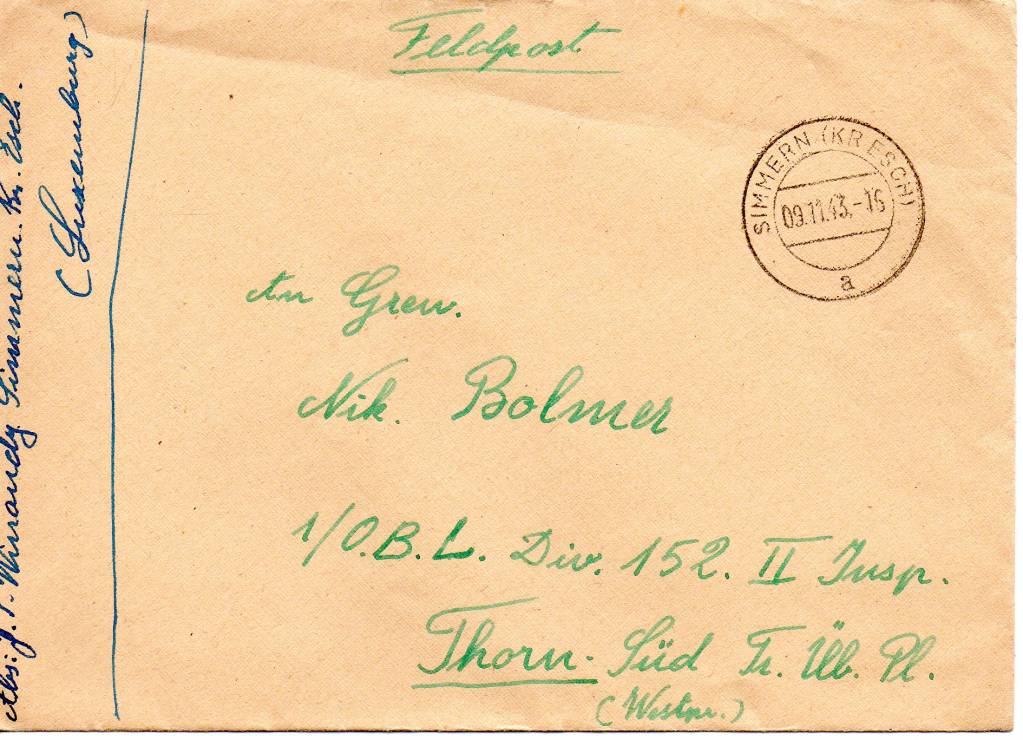 Feldpost
SIMMERN (KR ESCH)
09.11.43.-16
a
An Gren.
Nik. Bolmer
1/O.B.L. Div. 152. II Insp.
Thorn. Süd Tr. Üb. Pl.
(Westpr.)
Abs: J. P. Winandy Simmern. Kr. Esch.
(Luxemburg)